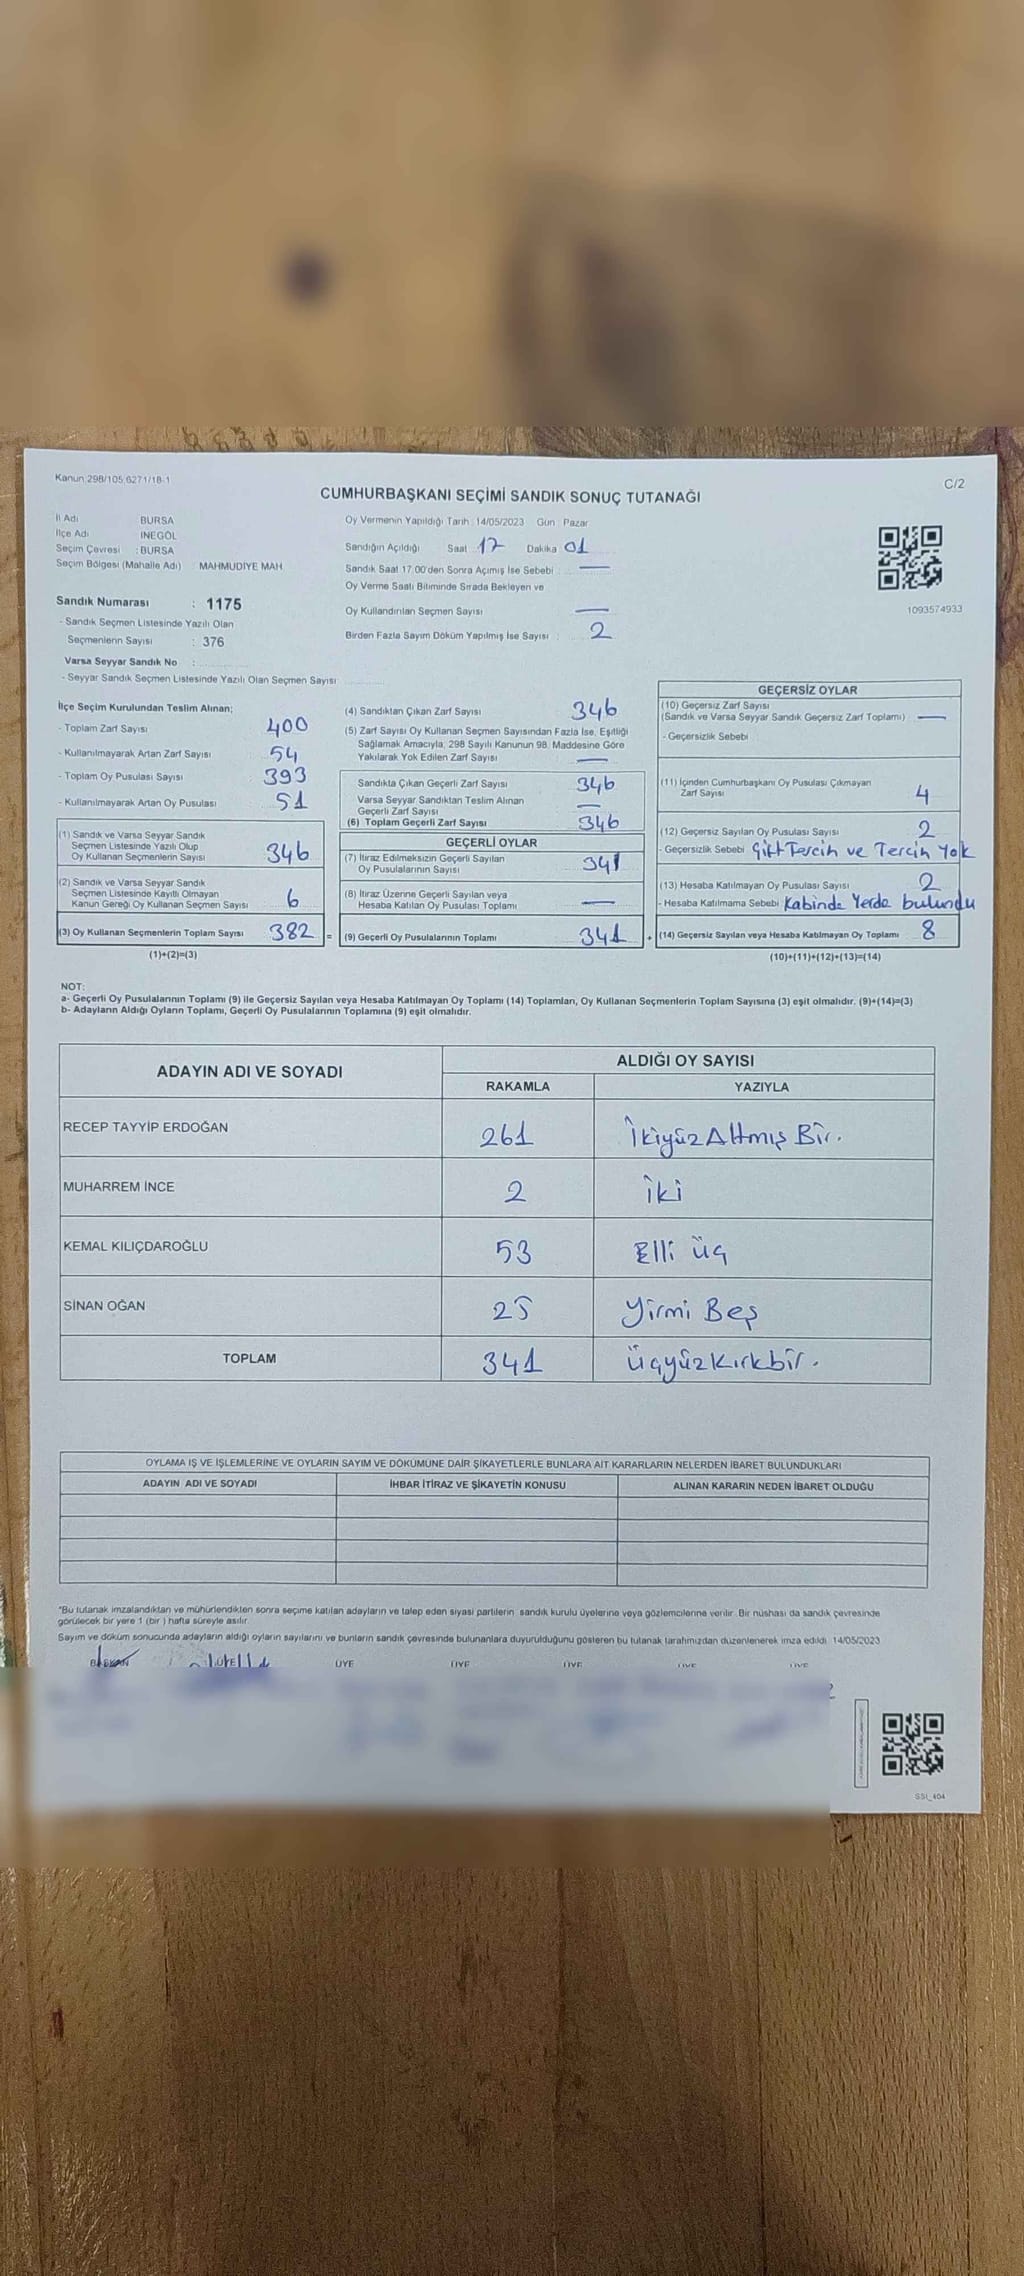 Kanun 298/105, 6271/18-1
C/2
CUMHURBAŞKANI SEÇİMİ SANDIK SONUÇ TUTANAĞI
İl Adı BURSA
İlçe Adı İNEGÖL
Seçim Çevresi : BURSA
Seçim Bölgesi (Mahalle Adı) MAHMUDİYE MAH
Sandık Numarası : 1175
- Sandık Seçmen Listesinde Yazılı Olan
Seçmenlerin Sayısı : 376
Varsa Seyyar Sandık No :
- Seyyar Sandık Seçmen Listesinde Yazılı Olan Seçmen Sayısı
Oy Vermenin Yapıldığı Tarih : 14/05/2023 Gün Pazar
Sandığın Açıldığı Saat 17 Dakika 01
Sandık Saat 17:00'den Sonra Açımış İse Sebebi : —
Oy Verme Saati Bitiminde Sırada Bekleyen ve
Oy Kullandırılan Seçmen Sayısı —
Birden Fazla Sayım Döküm Yapılmış İse Sayısı : 2
1093574933
İlçe Seçim Kurulundan Teslim Alınan;
- Toplam Zarf Sayısı 400
- Kullanılmayarak Artan Zarf Sayısı 54
- Toplam Oy Pusulası Sayısı 393
- Kullanılmayarak Artan Oy Pusulası 51
(1) Sandık ve Varsa Seyyar Sandık
Seçmen Listesinde Yazılı Olup
Oy Kullanan Seçmenlerin Sayısı 346
(2) Sandık ve Varsa Seyyar Sandık
Seçmen Listesinde Kayıtlı Olmayan
Kanun Gereği Oy Kullanan Seçmen Sayısı 6
(3) Oy Kullanan Seçmenlerin Toplam Sayısı 382 =
(1)+(2)=(3)
(4) Sandıktan Çıkan Zarf Sayısı 346
(5) Zarf Sayısı Oy Kullanan Seçmen Sayısından Fazla İse, Eşitliği
Sağlamak Amacıyla, 298 Sayılı Kanunun 98. Maddesine Göre
Yakılarak Yok Edilen Zarf Sayısı —
Sandıkta Çıkan Geçerli Zarf Sayısı 346
Varsa Seyyar Sandıktan Teslim Alınan
Geçerli Zarf Sayısı —
(6) Toplam Geçerli Zarf Sayısı 346
GEÇERLİ OYLAR
(7) İtiraz Edilmeksizin Geçerli Sayılan
Oy Pusulalarının Sayısı 341
(8) İtiraz Üzerine Geçerli Sayılan veya
Hesaba Katılan Oy Pusulası Toplamı —
(9) Geçerli Oy Pusulalarının Toplamı 341 +
GEÇERSİZ OYLAR
(10) Geçersiz Zarf Sayısı
(Sandık ve Varsa Seyyar Sandık Geçersiz Zarf Toplamı) —
- Geçersizlik Sebebi
(11) İçinden Cumhurbaşkanı Oy Pusulası Çıkmayan
Zarf Sayısı 4
(12) Geçersiz Sayılan Oy Pusulası Sayısı 2
- Geçersizlik Sebebi Çift Tercih ve Tercih Yok
(13) Hesaba Katılmayan Oy Pusulası Sayısı 2
- Hesaba Katılmama Sebebi Kabinde Yerde bulundu
(14) Geçersiz Sayılan veya Hesaba Katılmayan Oy Toplamı 8
(10)+(11)+(12)+(13)=(14)
NOT:
a- Geçerli Oy Pusulalarının Toplamı (9) ile Geçersiz Sayılan veya Hesaba Katılmayan Oy Toplamı (14) Toplamları, Oy Kullanan Seçmenlerin Toplam Sayısına (3) eşit olmalıdır. (9)+(14)=(3)
b- Adayların Aldığı Oyların Toplamı, Geçerli Oy Pusulalarının Toplamına (9) eşit olmalıdır.
ADAYIN ADI VE SOYADI ALDIĞI OY SAYISI
RAKAMLA YAZIYLA
RECEP TAYYİP ERDOĞAN 261 İkiyüz Altmış Bir.
MUHARREM İNCE 2 iki
KEMAL KILIÇDAROĞLU 53 Elli üç
SİNAN OĞAN 25 Yirmi Beş
TOPLAM 341 Üçyüzkırkbir.
OYLAMA İŞ VE İŞLEMLERİNE VE OYLARIN SAYIM VE DÖKÜMÜNE DAİR ŞİKAYETLERLE BUNLARA AİT KARARLARIN NELERDEN İBARET BULUNDUKLARI
ADAYIN ADI VE SOYADI İHBAR İTİRAZ VE ŞİKAYETİN KONUSU ALINAN KARARIN NEDEN İBARET OLDUĞU
"Bu tutanak imzalandıktan ve mühürlendikten sonra seçime katılan adayların ve talep eden siyasi partilerin sandık kurulu üyelerine veya gözlemcilerine verilir. Bir nüshası da sandık çevresinde
görülecek bir yere 1 (bir) hafta süreyle asılır.
Sayım ve döküm sonucunda adayların aldığı oyların sayılarını ve bunların sandık çevresinde bulunanlara duyurulduğunu gösteren bu tutanak tarafımızdan düzenlenerek imza edildi. 14/05/2023
BAŞKAN ÜYE ÜYE ÜYE ÜYE ÜYE
SSİ_404